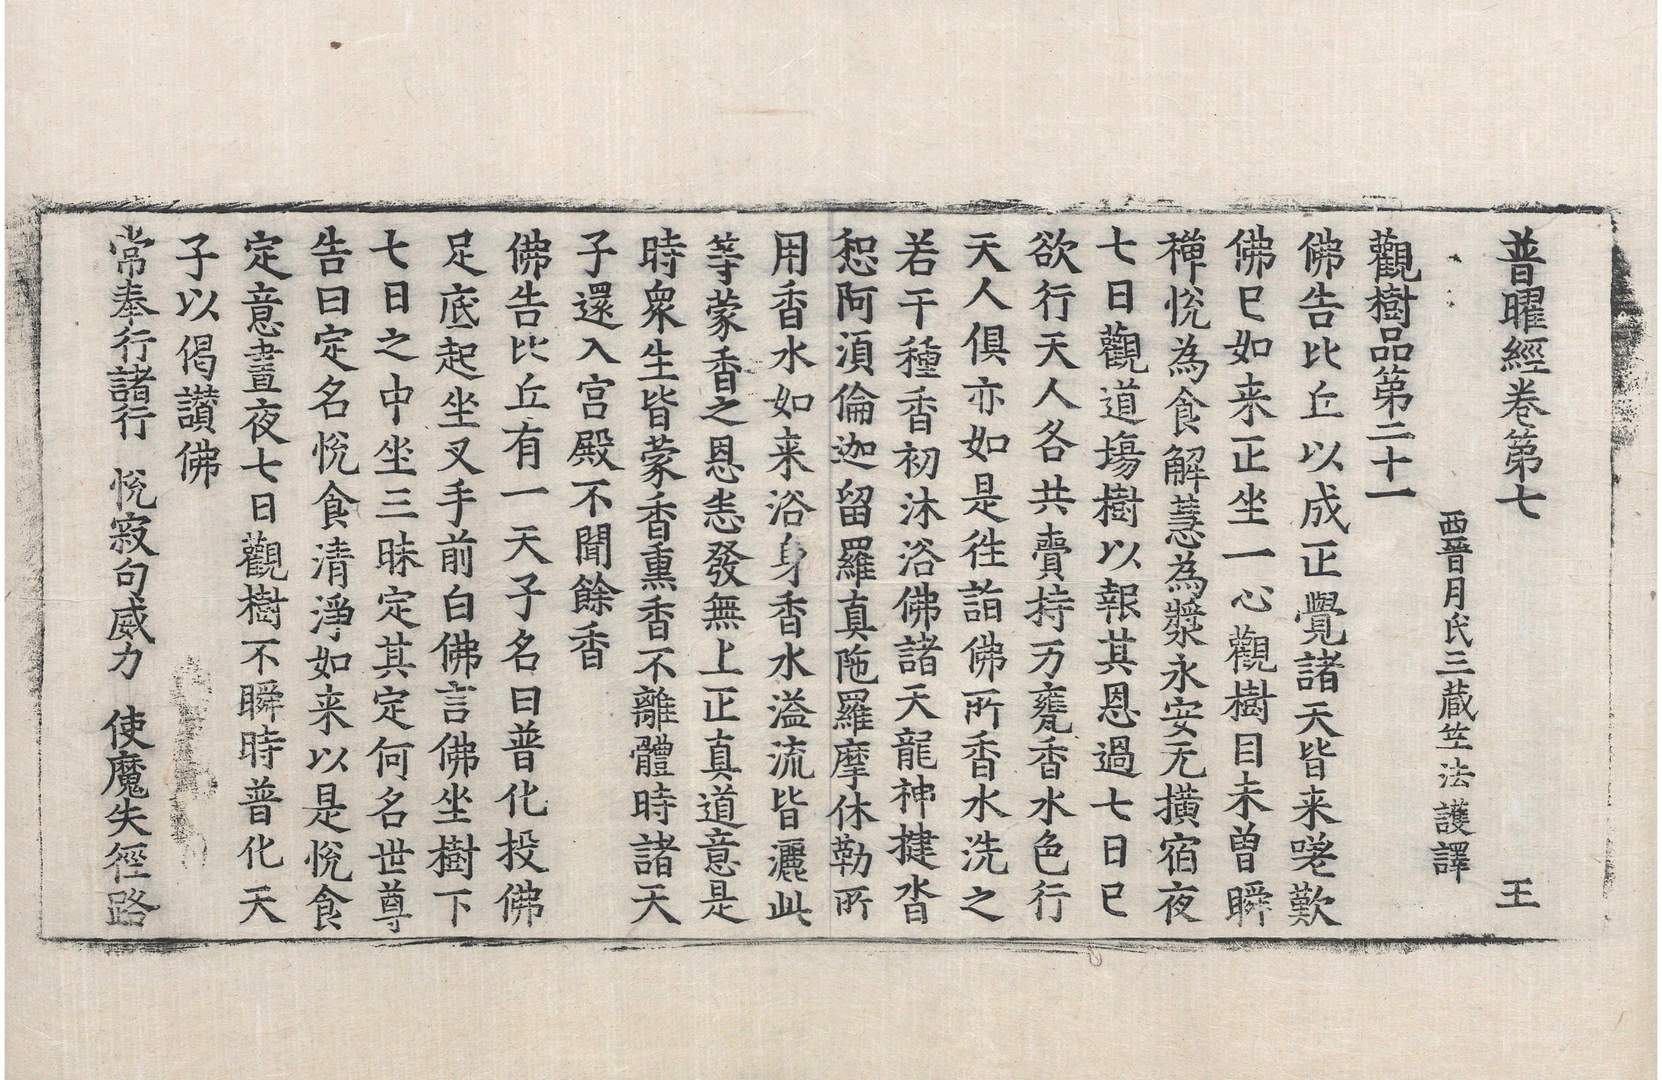 普曜經卷第七 王
西晉月氏三藏竺法護譯
觀樹品第二十一
佛告比丘以成正覺諸天皆来嗟歎
佛已如来正坐一心觀樹目未曾瞬
禪悅為食解慧為漿永安无撗宿夜
七日觀道場樹以報其恩過七日已
欲行天人各共賷持万甕香水色行
天人俱亦如是徃詣佛所香水洗之
若干種香初沐浴佛諸天龍神揵沓
惒阿須倫迦留羅真陁羅摩休勒所
用香水如来浴身香水溢流皆灑此
等蒙香之恩恚發無上正真道意是
時衆生皆蒙香熏香不離體時諸天
子還入宮殿不聞餘香
佛告比丘有一天子名曰普化投佛
足底起坐叉手前白佛言佛坐樹下
七日之中坐三昧定其定何名世尊
告曰定名悅食清淨如来以是悅食
定意晝夜七日觀樹不瞬時普化天
子以偈讃佛
常奉行諸行 悅寂句威力 使魔失徑路